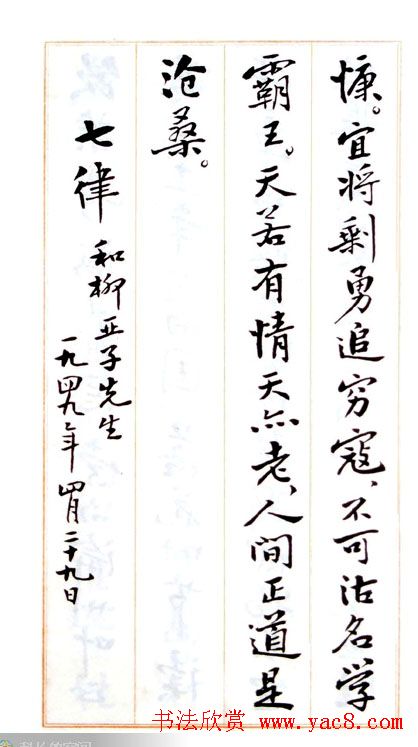 慷。宜将剩勇追穷寇、不可沽名学
霸王。天若有情天亦老、人间正道是
沧桑。
七律
和柳亚子先生
一九四九年四月二十九日
书法欣赏 www.yac8.com